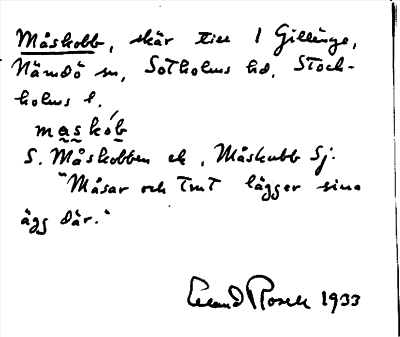 Måskobb, skär till 1 Gillinge,
Nämdö sn, Sotholms hd, Stock-
holms l.
maskób
S. Måskobben ek, Måskubb Sj.
"Måsar och Trut lägger sina
ägg där."
Rosell 1933